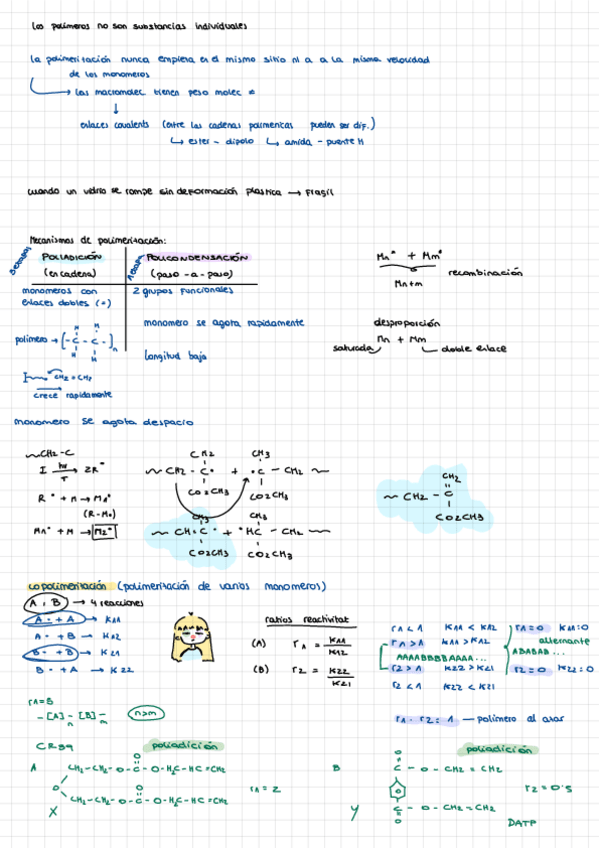 Los polímeros no son substancias individuales
la polimerización nunca empieza en el mismo sitio ni a a la misma velocidad
de los monomeros
→ las macromolec tienen peso molec ≠
↓
enlaces covalents (entre las cadenas polimericas pueden ser dif.)
↳ ester - dipolo ↳ amida - puente H
cuando un vidrio se rompe sin deformación plastica → Fragil
Mecanismos de polimerización:
3 etapas
POLIADICIÓN
(en cadena)
monomeros con
enlaces dobles (=)
polimero → [-C-C-]n
H H
H H
I CH2=CH2
crece rapidamente
1 etapa
POLICONDENSACIÓN
(paso-a-paso)
2 grupos funcionales
monomero se agota rapidamente
longitud baja
Mn• + Mm•
Mn+m
recombinación
desproporción
Mn + Mm
saturada
doble enlace
monomero se agota despacio
~CH2-C
I hv → 2R•
T
R• + M → M1•
(R-M•)
M1• + M → M2•
CH2 CH3
~ CH2 - C• + •C - CH2 ~
CO2CH3 CO2CH3
CH3 CH3
~ CH=C• + •HC - CH2 ~
CO2CH3 CO2CH3
CH2
~ CH2 - C
CO2CH3
copolimerización (polimerización de varios monomeros)
A, B → 4 reacciones
A• + A → K11
A• + B → K12
B• + B → K21
B• + A → K22
ratios reactivitat
(A) r1 = K11/K12
(B) r2 = K22/K21
r1 < 1 K11 < K12
r1 > 1 K11 > K12
AAAABBBBAAAA...
r2 > 1 K22 > K21
r2 < 1 K22 < K21
r1 = 0 K11 = 0
alternante
ABABAB...
r2 = 0 K22 = 0
r1=5
-[A]n-[B]m- n>m
r1 · r2 = 1 — polímero al azar
CR39 poliadición
A
O
CH2-CH2-O-C-O-H2C-HC=CH2
O
O
CH2-CH2-O-C-O-H2C-HC=CH2
X
r1 = 2
poliadición
B
O
C - O - CH2 = CH2
C - O - CH2=CH2
O
Y
r2 = 0.5
DATP